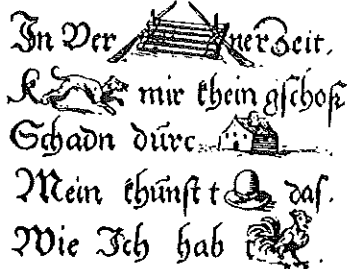 In Der ner Zeit.
K mir khein gschoß
Schadn dürc
Mein khünst t das.
Wie Ich hab r